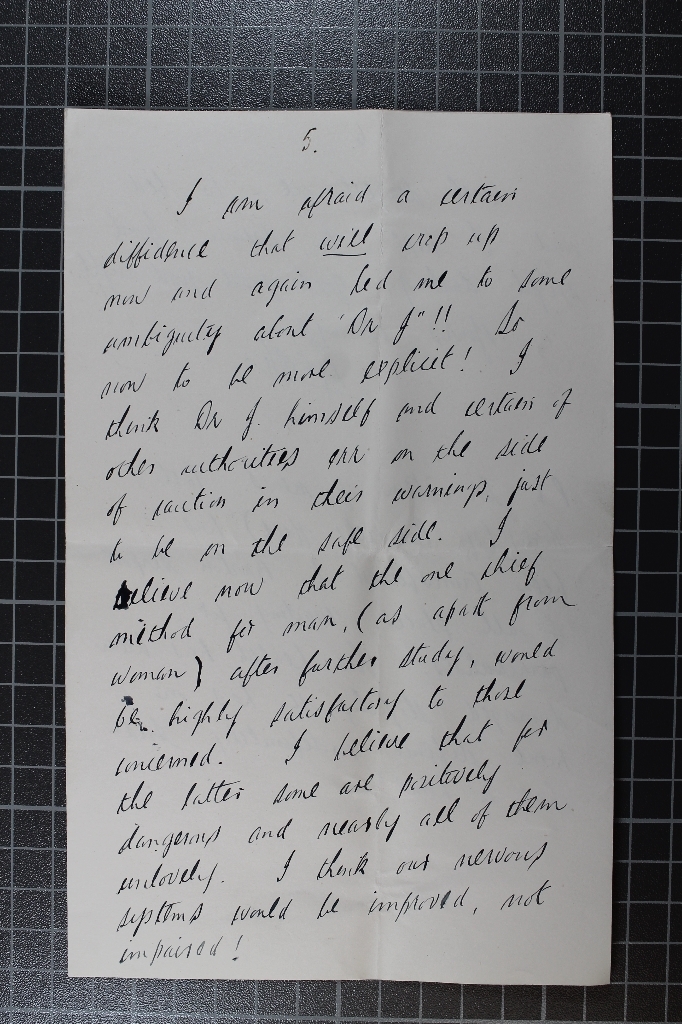 5.
I am afraid a certain
diffidence that will crop up
now and again led me to some
ambiguity about "Dr J"!! So
now to be more explicit! I
think Dr J. himself and certain of
other authorities err on the side
of caution in their warnings, just
to be on the safe side. I
believe now that the one chief
method for man, (as apart from
woman) after further study, would
be highly satisfactory to those
concerned. I believe that for
the latter some are positively
dangerous and nearly all of them
unlovely. I think our nervous
systems would be improved, not
impaired!